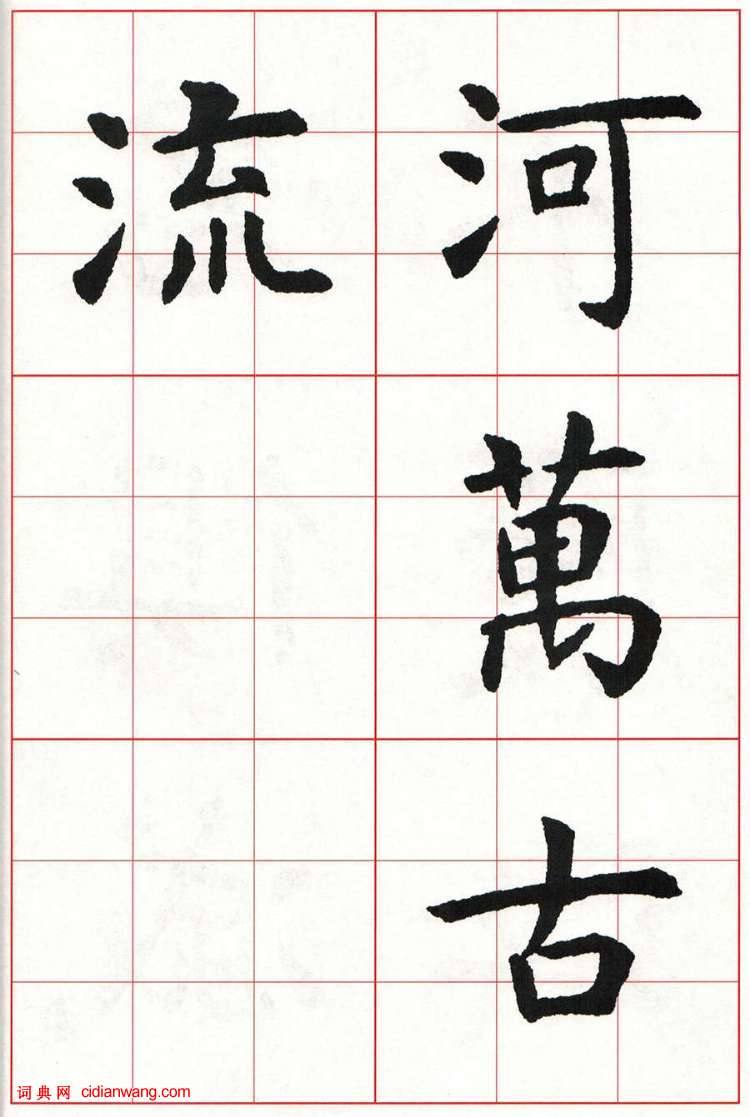 河萬古
流
词典网 cidianwang.com